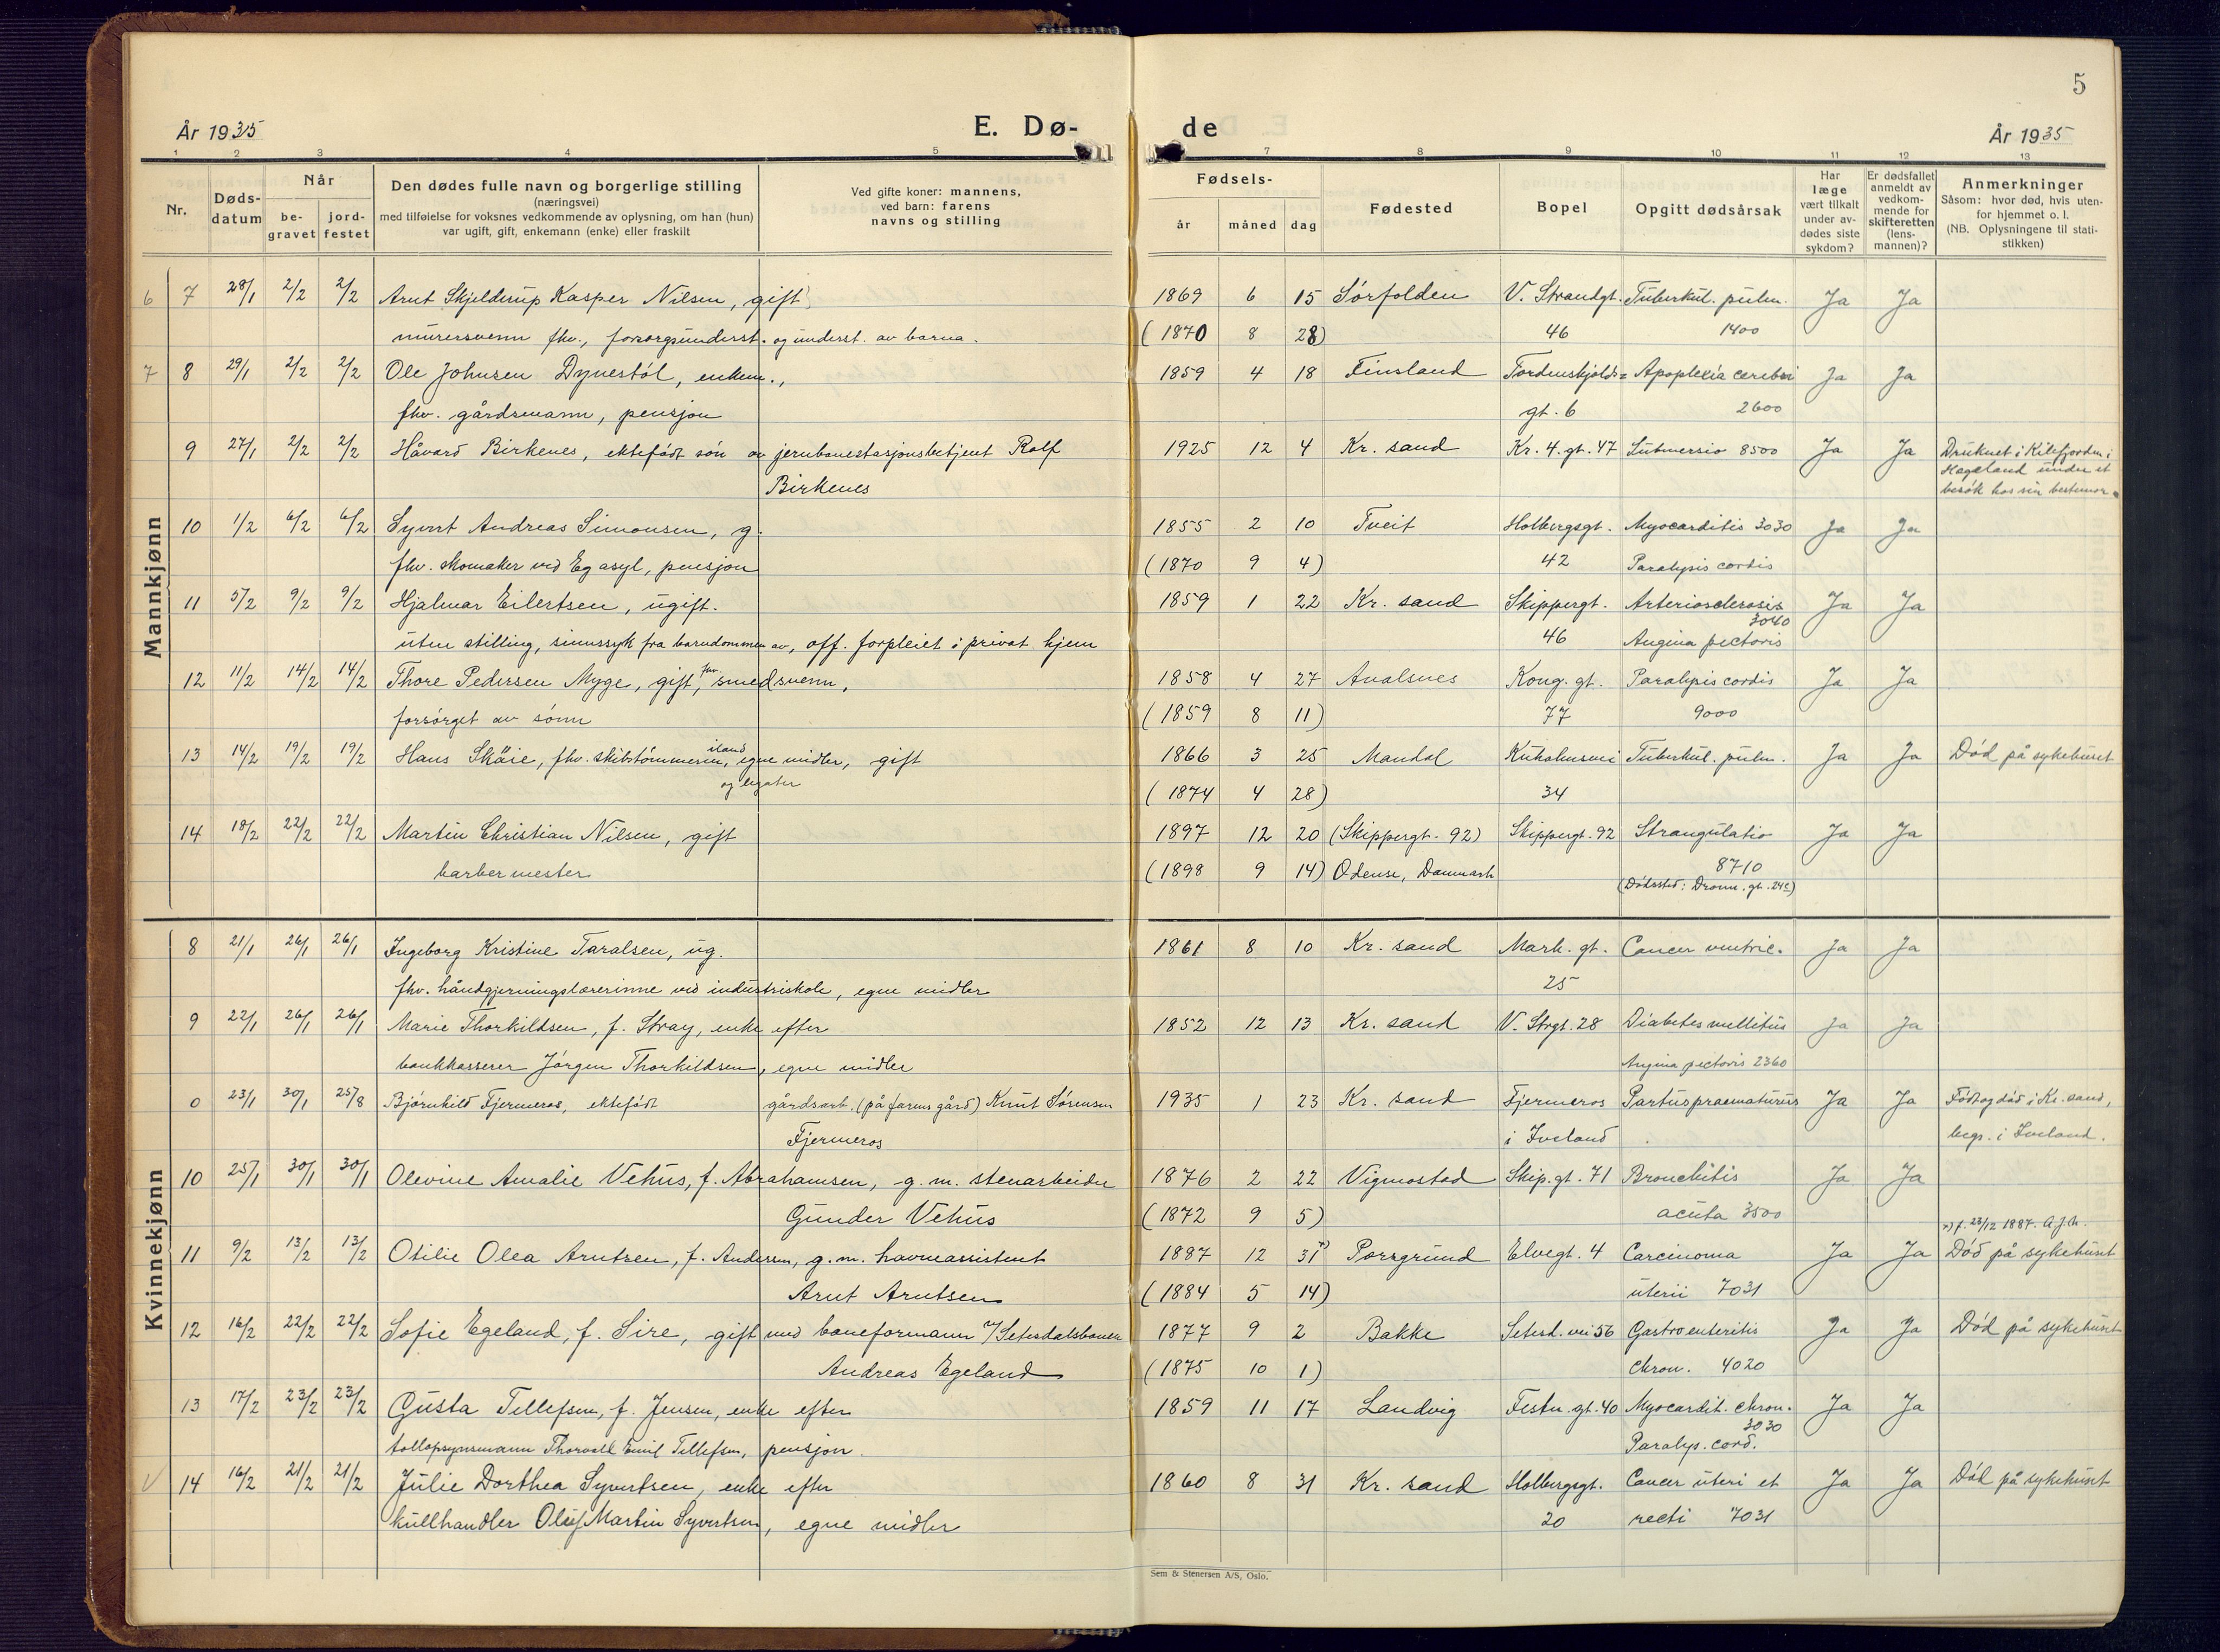 5
År 1935 E. Dø- de År 1935
1 2 3 4 5 7 8 9 10 11 12 13
Nr. Døds-datum Når be-gravet jord-festet Den dødes fulle navn og borgerlige stilling (næringsvei) med tilføielse for voksnes vedkommende av oplysning, om han (hun) var ugift, gift, enkemann (enke) eller fraskilt Ved gifte koner: mannens, ved barn: farens navns og stilling Fødsels- år måned dag Fødested Bopel Opgitt dødsårsak Har læge vært tilkalt under av-dødes siste sykdom? Er dødsfallet anmeldt av vedkom-mende for skifteretten (lens-mannen)? Anmerkninger Såsom: hvor død, hvis uten-for hjemmet o. l. (NB. Oplysningene til stati-stikken)
Mannkjønn
6 7 28/1 2/2 2/2 Arnt Skjelderup Kasper Nilsen, gift, 1869 6 15 Sörfolden V. Strandgt. Tuberkul. pulm. Ja Ja
murersvenn fhv., forsorgsunderst. og underst. av barna. (1870 8 28) 46 1400
7 8 29/1 2/2 2/2 Ole Johnsen Dynestöl, enkem., 1859 4 18 Finsland Tordenskjolds= Apoplexia cerebri Ja Ja
fhv. gårdsmann, pensjon gt. 6 2600
9 27/1 2/2 2/2 Håvard Birkenes, ektefödt sön av jernbanestasjonsbetjent Rolf 1925 12 4 Kr. sand Kr. 4. gt. 47 Submersio 8500 Ja Ja Druknet i Kilefjorden i
Birkenes Hægeland under et
besök hos sin bestemor.
10 1/2 6/2 6/2 Syvert Andreas Simonsen, g. 1855 2 10 Tveit Holbergsgt. Myocarditis 3030 Ja Ja
fhv. skomaker ved Eg asyl, pensjon (1870 9 4) 42 Paralysis cordis
11 5/2 9/2 9/2 Hjalmar Eilertsen, ugift. 1859 1 22 Kr. sand Skippergt. Arteriosclerosis Ja Ja
3040
uten stilling, sinnssyk fra barndommen av, off. forpleiet i privat hjem 46 Angina pectoris
12 11/2 14/2 14/2 Thore Pedersen Myge, gift, fhv. smedsvenn, 1858 4 27 Avalsnes Kong. gt. Paralysis cordis Ja Ja
forsörget av sönn (1859 8 11) 77 9000
13 14/2 19/2 19/2 Hans Skäie, fhv. skibstömmerm. iland, egne midler, gift 1866 3 25 Mandal Kuholmsvei Tuberkul. pulm. Ja Ja Död på sykehuset
og legater (1874 4 28) 34
14 18/2 22/2 22/2 Martin Christian Nilsen, gift 1897 12 20 (Skippergt. 92) Skippergt. 92 Strangulatio Ja Ja
barbermester (1898 9 14) Odense, Danmark 8710
(Dödssted: Dronn. gt. 24c)
Kvinnekjønn
8 21/1 26/1 26/1 Ingeborg Kristine Taralsen, ug. 1861 8 10 Kr. sand Mark. gt. Cancer ventric. Ja Ja
fhv. håndgjerningslærerinne ved industriskole, egne midler 25
9 22/1 26/1 26/1 Marie Thorkildsen, f. Stray, enke efter 1852 12 13 Kr. sand V. Strgt. 28 Diabetes mellitus Ja Ja
bankkasserer Jörgen Thorkildsen, egne midler Angina pectoris 2360
0 23/1 30/1 25/8 Björnhild Fjermeros, ektefödt gårdsarb. (på farens gård) Knut Sörensen 1935 1 23 Kr. sand Fjermeros Partus praematurus Ja Ja Född og död i Kr. sand,
Fjermeros i Iveland begr. i Iveland.
10 25/1 30/1 30/1 Olevine Amalie Vehus, f. Abrahamsen, g. m. stenarbeider 1876 2 22 Vigmostad Skip. gt. 71 Bronchitis Ja Ja
Gunder Vehus (1872 9 5) acuta 3500
x) f. 23/12 1887. A.J.h.
11 9/2 13/2 13/2 Otilie Olea Arntsen, f. Andersen, g. m. havneassistent 1887 12 31 x) Porsgrund Elvegt. 4 Carcinoma Ja Ja Död på sykehuset
Arnt Arntsen (1884 5 14) uterii 7031
12 16/2 22/2 22/2 Sofie Egeland, f. Sire, gift med baneformann v/Setesdalsbanen 1877 9 2 Bakke Setesd. vei 56 Gastroenteritis Ja Ja Död på sykehuset
Andreas Egeland (1875 10 1) chron. 4020
13 17/2 23/2 23/2 Gusta Tellefsen, f. Jensen, enke efter 1859 11 17 Landvig Festn. gt. 40 Myocardit. chron. Ja Ja
3030
tollopsynsmann Thorvald Emil Tellefsen, pensjon. Paralys. cord.
V 14 16/2 21/2 21/2 Julie Dorthea Syvertsen, enke efter 1860 8 31 Kr. sand Holbergsgt. Cancer uteri et Ja Ja Död på sykehuset
kullhandler Oluf Martin Syvertsen, egne midler 20 recti 7031
Sem & Stenersen A/S, Oslo.